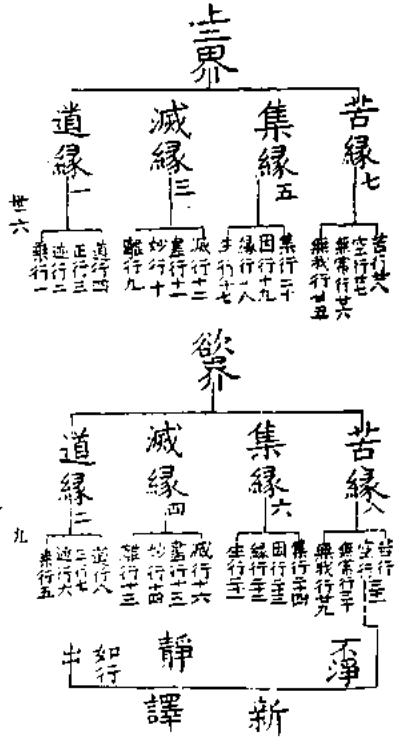 上二界
苦縁七
集縁五
滅縁三
道縁一
苦行廿八
空行廿七
無常行廿六
無我行廿五
集行二十
因行十九
縁行十八
生行十七
滅行十二
盡行十一
妙行十
離行九
道行四
正行三
迹行二
乗行一
卅六
欲界
苦縁八
集縁六
滅縁四
道縁二
苦行三二
空行三一
無常行三十
無我行廿九
集行二四
因行二三
縁行二二
生行二一
滅行十六
妙行十四
離行十三
道行八
正行七
迹行六
乗行五
九
不淨
靜
如行
出
新譯